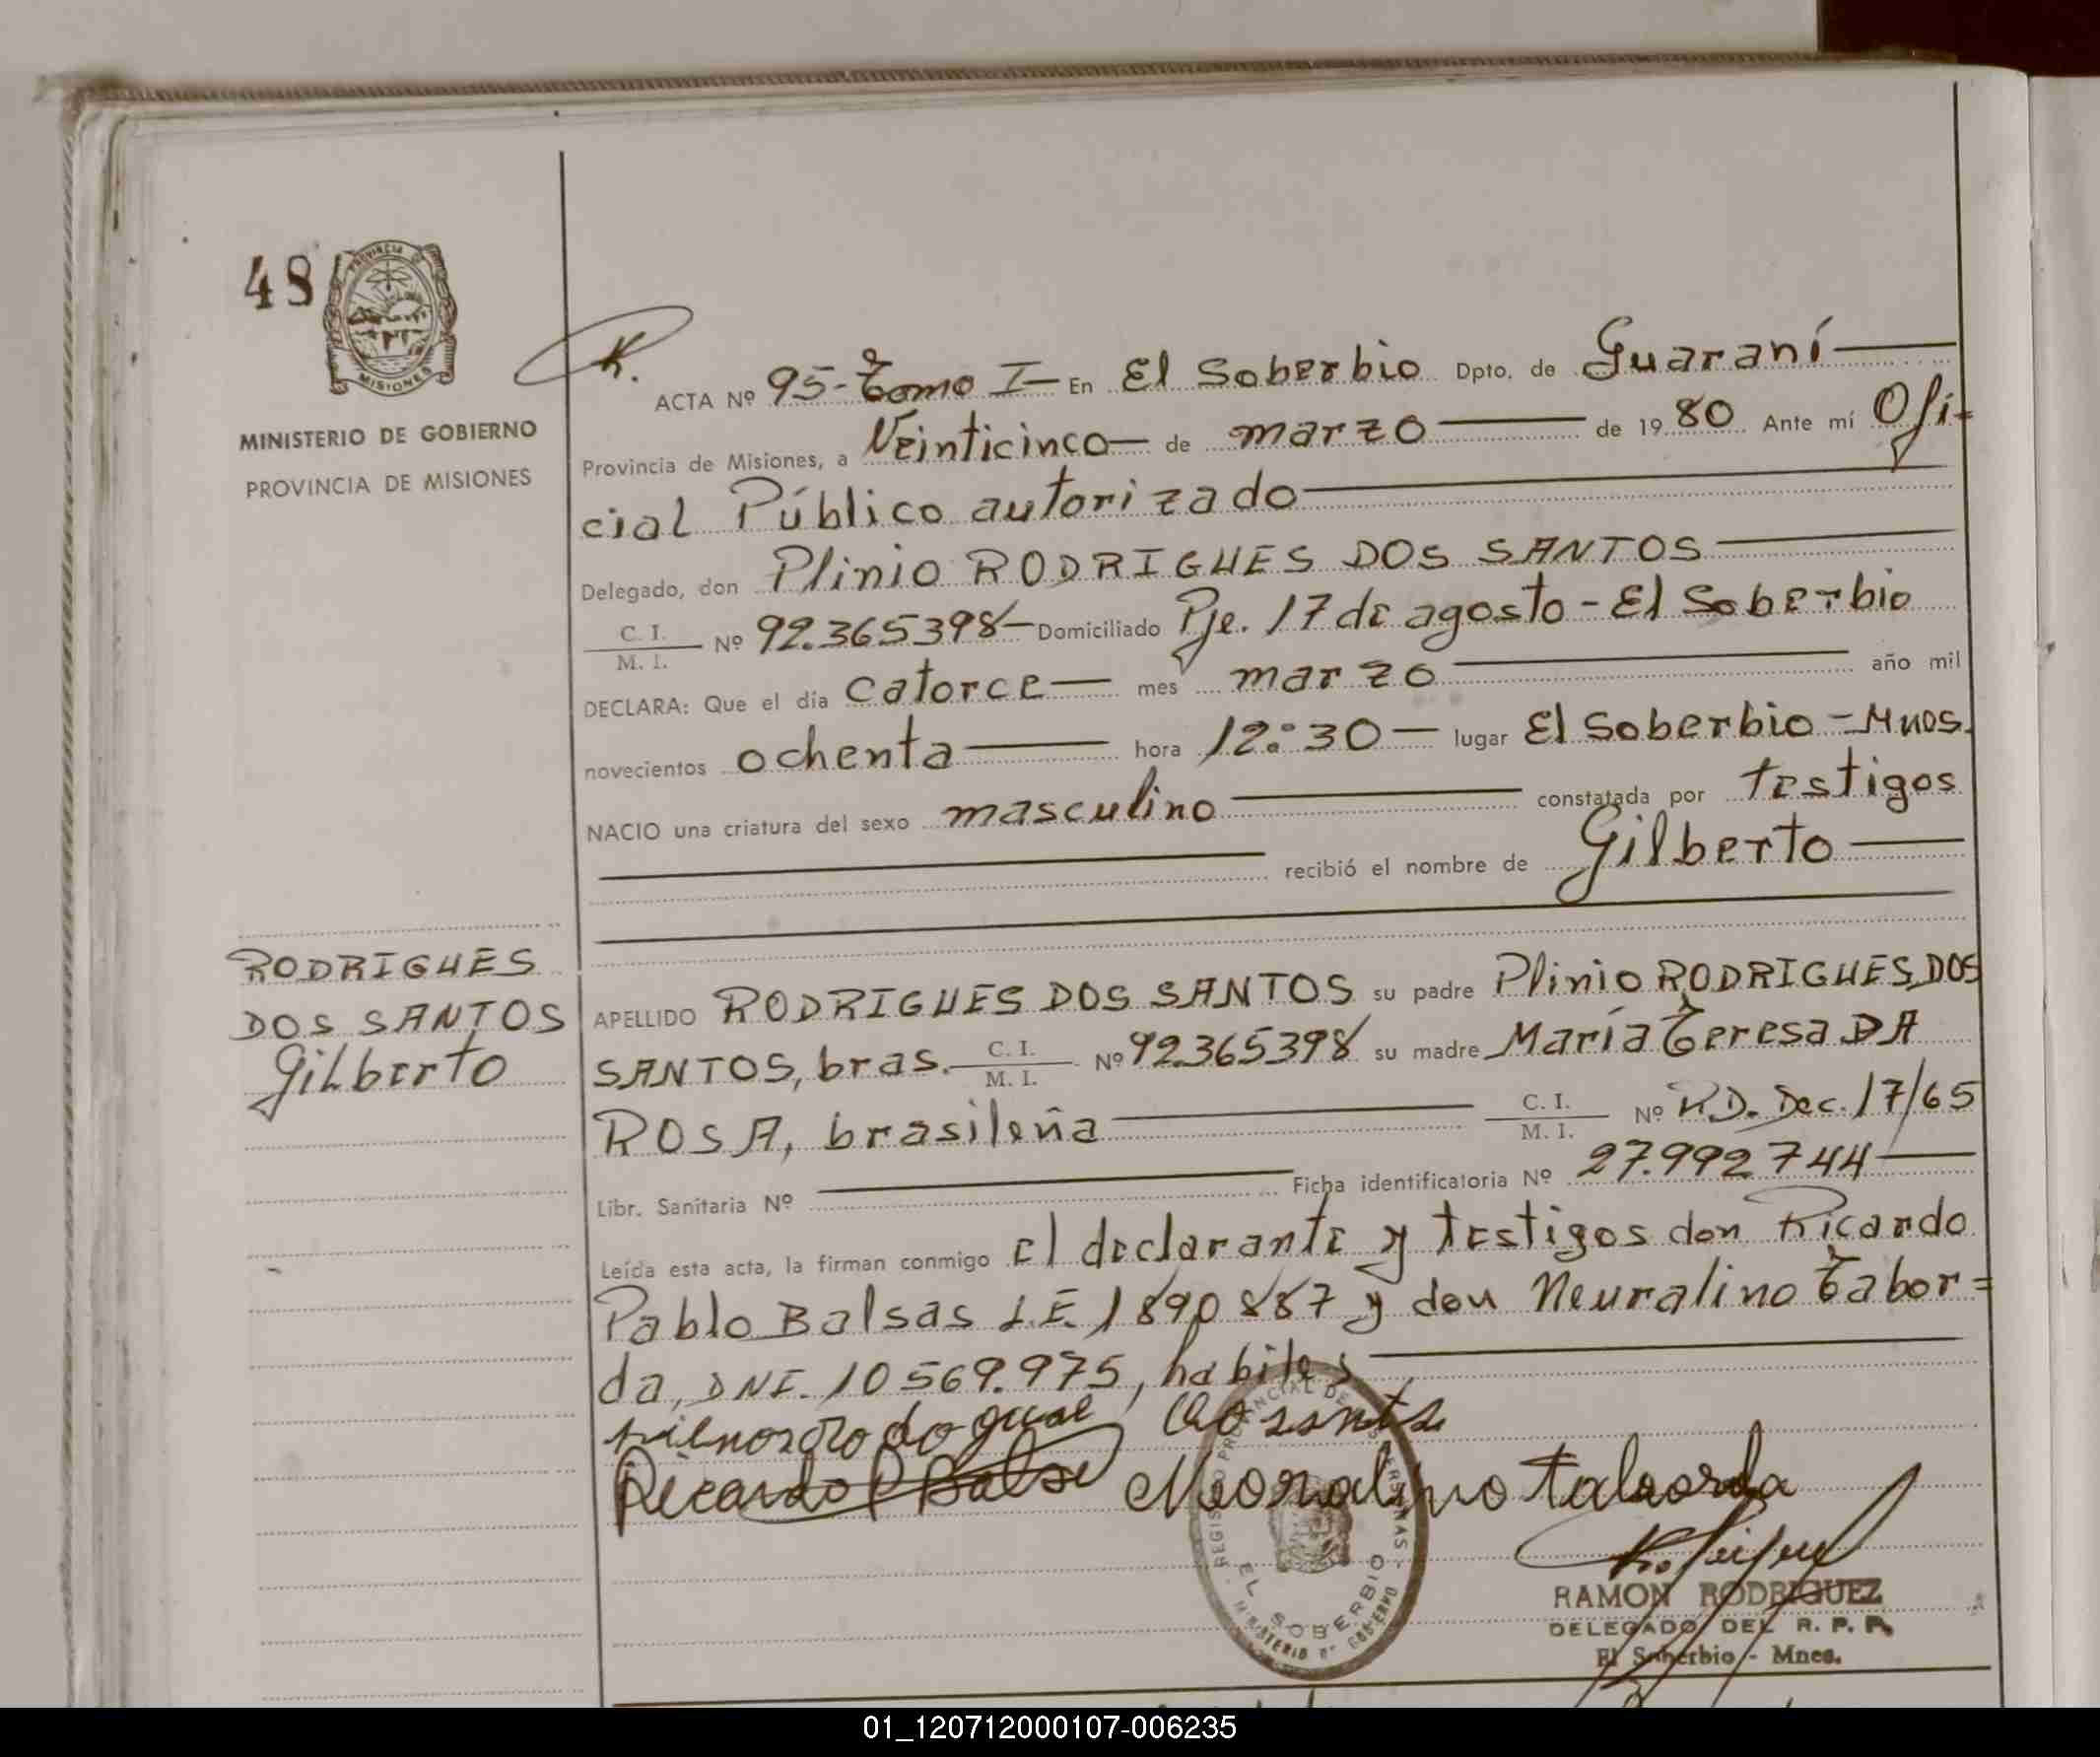 48
PROVINCIA DE
MISIONES
MINISTERIO DE GOBIERNO
PROVINCIA DE MISIONES
RODRIGUES
DOS SANTOS
Gilberto
R.
ACTA Nº 95-Tomo I- En El Soberbio Dpto. de Guaraní
Provincia de Misiones, a Veinticinco de marzo de 1980 Ante mí Ofi=
cial Público autorizado
Delegado, don Plinio RODRIGUES DOS SANTOS
C. I.
M. I. Nº 92.365398- Domiciliado Pje. 17 de agosto - El Soberbio
DECLARA: Que el día catorce mes marzo año mil
novecientos ochenta hora 12:30 lugar El Soberbio - Mnes.
NACIO una criatura del sexo masculino constatada por testigos
recibió el nombre de Gilberto
APELLIDO RODRIGUES DOS SANTOS su padre Plinio RODRIGUES DOS
SANTOS, bras. C. I. M. I. Nº 92365398 su madre María Teresa DA
ROSA, brasileña C. I. M. I. Nº R.D. Dec. 17/65
Libr. Sanitaria Nº Ficha identificatoria Nº 27.992744
Leída esta acta, la firman conmigo el declarante y testigos don Ricardo
Pablo Balsas L.E. 1890887 y don Neuralino Tabor=
da, DNI. 10569.975, habiles
Ricardo P Balsa Neoralino taborda
REGISTRO PROVINCIAL DE LAS PERSONAS
EL SOBERBIO
MINISTERIO DE GOBIERNO
RAMON RODRIGUEZ
DELEGADO DEL R. P. P.
El Soberbio - Mnes.
01_120712000107-006235